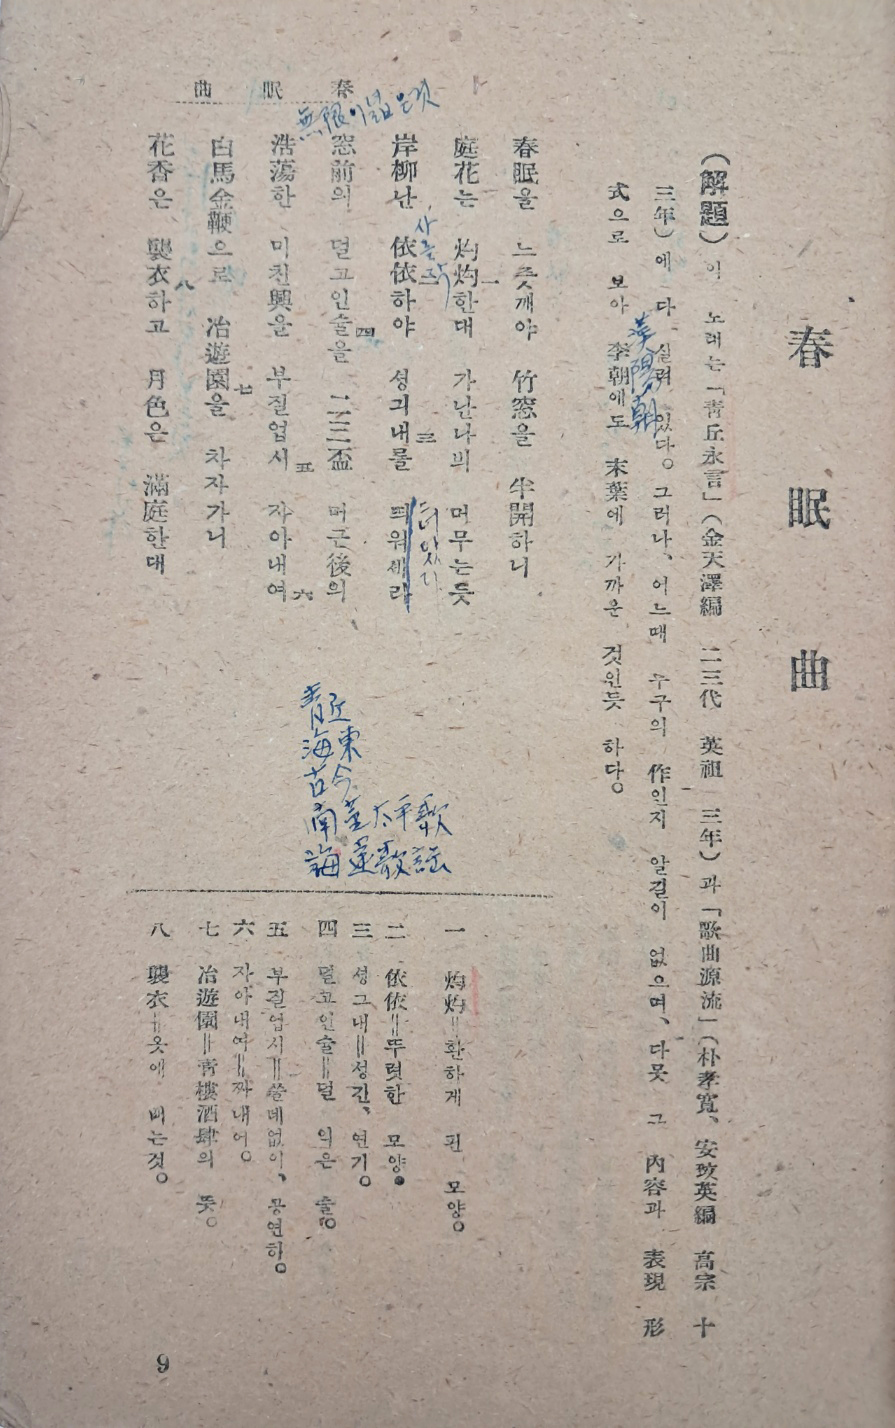 春眠曲
(解題) 이 노래는 「靑丘永言」 (金天澤編 二三代 英祖 三年) 과 「歌曲源流」 (朴孝寬、安玟英編 高宗 十
三年) 에 다 실려 있다。 그러나、 어느때 누구의 作인지 알길이 없으며、 다못 그 內容과 表現 形
式으로 보아 李朝에도 末葉에 가까운 것인듯 하다。
漢陽朝
春眠을 느즛깨야 竹窓을 半開하니
庭花는 灼灼한대 가난나븨 머무는듯
一
岸柳난 依依하야 성긔내를 띄워세라
二
三
窓前의 덜고인술을 二三盃 머근後의
四
浩蕩한 미친興을 부질업시 자아내여
五
六
白馬金鞭으로 冶遊園을 차자가니
七
花香은 襲衣하고 月色은 滿庭한대
八
無限이넓은것
靑丘
海東
古今
南薰太平歌
海東歌謠
一 灼灼=환하게 핀 모양。
二 依依=뚜렷한 모양。
三 성그내=성긴、연기。
四 덜고인술=덜 익은 술。
五 부질업시=쓸데없이、공연히。
六 자아내여=짜내어。
七 冶遊園=靑樓酒肆의 뜻。
八 襲衣=옷에 배는것。
春眠曲
9